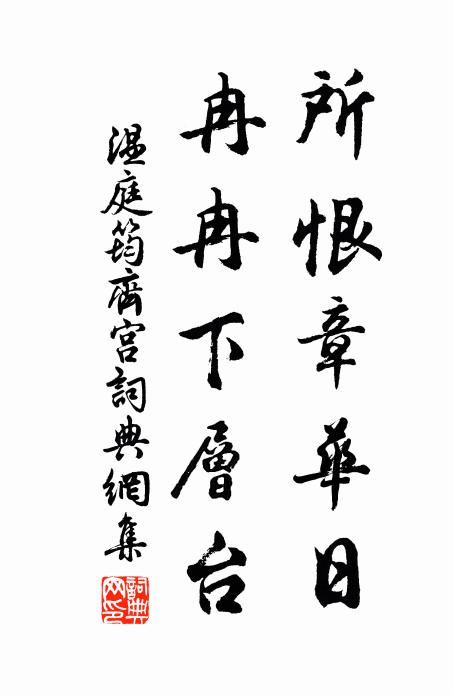 所恨章華日
冉冉下層台
温庭筠齊宮詞典網集
詞典網印